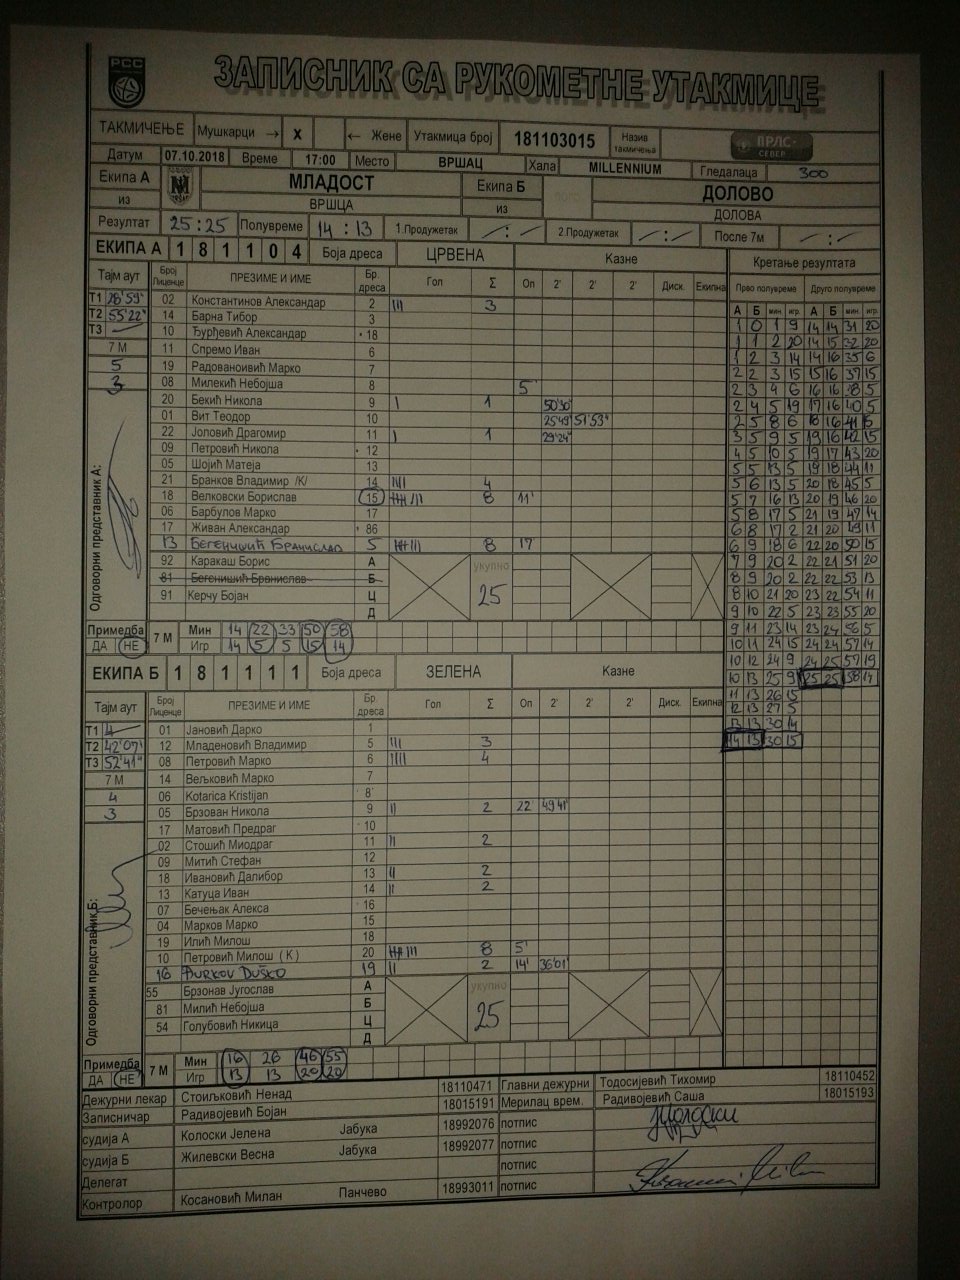 РСС
ЗАПИСНИК СА РУКОМЕТНЕ УТАКМИЦЕ
ТАКМИЧЕЊЕ Мушкарци → X ← Жене Утакмица број 181103015 Назив такмичења ПРЛС-СЕВЕР
Датум 07.10.2018 Време 17:00 Место ВРШАЦ Хала MILLENNIUM Гледалаца 300
Екипа А МЛАДОСТ Екипа Б ДОЛОВО
из ВРШЦА из ДОЛОВА
Резултат 25:25 Полувреме 14:13 1.Продужетак -:- 2.Продужетак -:- После 7м -:-
ЕКИПА А 1 8 1 1 0 4 Боја дреса ЦРВЕНА Казне Кретање резултата
Тајм аут Број Лиценце ПРЕЗИМЕ И ИМЕ Бр. дреса Гол Σ Оп 2' 2' 2' Диск. Екипна Прво полувреме Друго полувреме
А Б мин. игр. А Б мин. игр.
Т1 28'59" 02 Константинов Александар 2 III 3
Т2 55'22" 14 Барна Тибор 3
Т3 10 Ђурђевић Александар 18
7 М 11 Спремо Иван 6
5 19 Радованоивић Марко 7
3 08 Милекић Небојша 8 5'
20 Бекић Никола 9 I 1 50'30"
01 Вит Теодор 10 25'49" 51'53"
22 Јоловић Драгомир 11 I 1 29'24"
09 Петровић Никола 12
05 Шојић Матеја 13
21 Бранков Владимир /К/ 14 IIII 4
18 Велковски Борислав 15 IIII III 8 11'
06 Барбулов Марко 17
17 Живан Александар 86
13 БЕГЕНИШИЋ БРАНИСЛАВ 5 IIII III 8 17
92 Каракаш Борис А укупно
81 Бегенишић Бранислав Б 25
91 Керчу Бојан Ц
Д
Одговорни представник А:
1 0 1 9 14 14 31 20
1 1 2 20 14 15 32 20
1 2 3 14 14 16 35 6
2 2 3 15 15 16 37 15
2 3 4 6 16 16 38 5
2 4 5 19 17 16 40 5
2 5 8 6 18 16 41 5
3 5 9 5 19 16 42 15
4 5 10 5 19 17 43 20
5 5 13 5 19 18 44 11
5 6 13 5 20 18 45 5
5 7 16 13 20 19 46 20
5 8 17 5 21 19 47 14
6 8 17 2 21 20 49 11
6 9 18 6 22 20 50 15
7 9 20 2 22 21 51 20
8 9 20 2 22 22 53 13
8 10 21 20 23 22 54 11
9 10 22 5 23 23 55 20
9 11 23 14 23 24 56 5
10 11 24 15 24 24 57 14
10 12 24 9 24 25 57 19
10 13 25 9 25 25 58 14
11 13 26 15
12 13 27 5
13 13 30 14
14 13 30 15
Примедба 7 М Мин 14 22 33 50 58
ДА НЕ Игр 14 5 5 15 14
ЕКИПА Б 1 8 1 1 1 1 Боја дреса ЗЕЛЕНА Казне
Тајм аут Број Лиценце ПРЕЗИМЕ И ИМЕ Бр. дреса Гол Σ Оп 2' 2' 2' Диск. Екипна
Т1 01 Јановић Дарко 1
Т2 42'07" 12 Младеновић Владимир 5 III 3
Т3 52'41" 08 Петровић Марко 6 IIII 4
7 М 14 Вељковић Марко 7
4 06 Kotarica Kristijan 8
3 05 Брзован Никола 9 II 2 22' 49'41"
17 Матовић Предраг 10
02 Стошић Миодраг 11 II 2
09 Митић Стефан 12
18 Ивановић Далибор 13 II 2
13 Катуца Иван 14 II 2
07 Бечењак Алекса 16
04 Марков Марко 15
19 Илић Милош 18
10 Петровић Милош ( К ) 20 IIII III 8 5'
16 ĐURKOV DUŠKO 19 II 2 14' 36'01"
55 Брзонав Југослав А укупно
81 Милић Небојша Б 25
54 Голубовић Никица Ц
Д
Одговорни представник Б:
Примедба 7 М Мин 16 26 46 55
ДА НЕ Игр 13 13 20 20
Дежурни лекар Стоиљковић Ненад 18110471 Главни дежурни Тодосијевић Тихомир 18110452
Записничар Радивојевић Бојан 18015191 Мерилац врем. Радивојевић Саша 18015193
судија А Колоски Јелена Јабука 18992076 потпис
судија Б Жилевски Весна Јабука 18992077 потпис
Делегат потпис
Контролор Косановић Милан Панчево 18993011 потпис